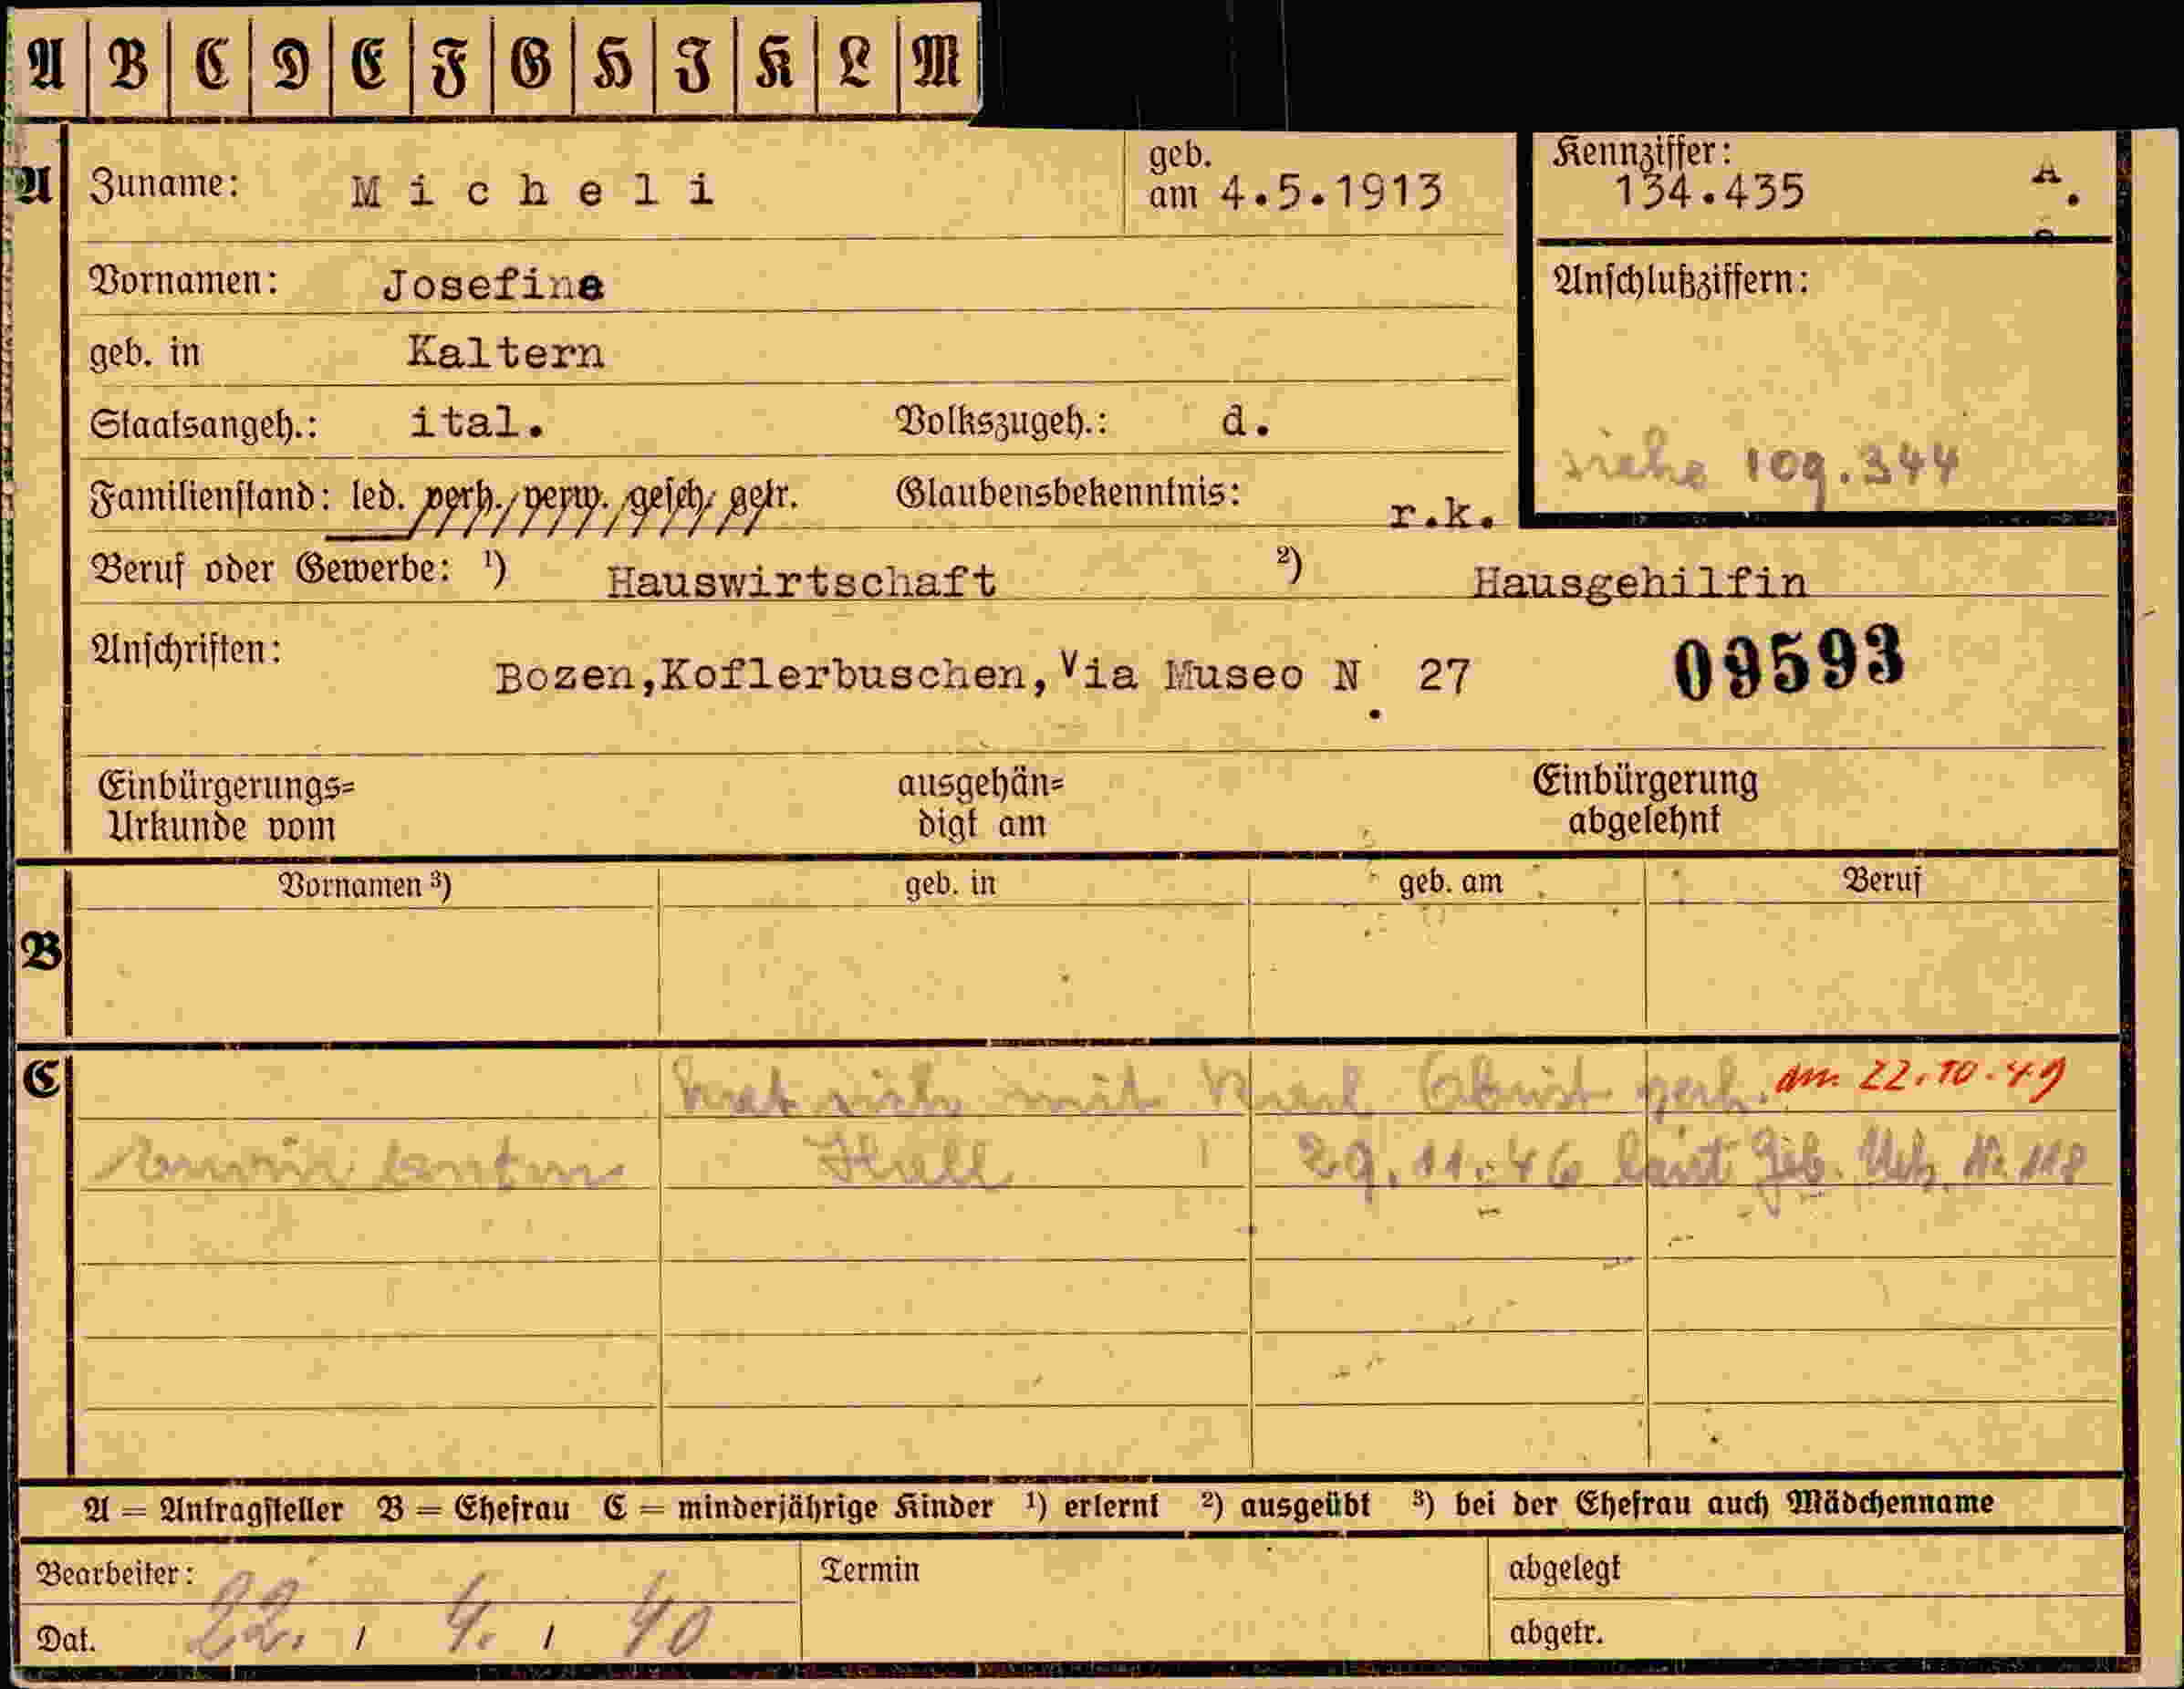 A B C D E F G H I K L M
A Zuname: Micheli geb. am 4.5.1913 Kennziffer: 134.435 A.
Vornamen: Josefine Anschlußziffern:
geb. in Kaltern
Staatsangeh.: ital. Volkszugeh.: d. siehe 109.344
Familienstand: led. verh. verw. gesch. getr. Glaubensbekenntnis: r.k.
Beruf oder Gewerbe: 1) Hauswirtschaft 2) Hausgehilfin
Anschriften: Bozen,Koflerbuschen,Via Museo N. 27 09593
Einbürgerungs= ausgehän= Einbürgerung
Urkunde vom digt am abgelehnt
Vornamen 3) geb. in geb. am Beruf
B
C hat sich mit Karl verh. am 22.10.49
Hall 29.11.46 laut Geb. Urk. Nr. 118
A = Antragsteller B = Ehefrau C = minderjährige Kinder 1) erlernt 2) ausgeübt 3) bei der Ehefrau auch Mädchenname
Bearbeiter: Termin abgelegt
Dat. 22. / 4. / 40 abgetr.